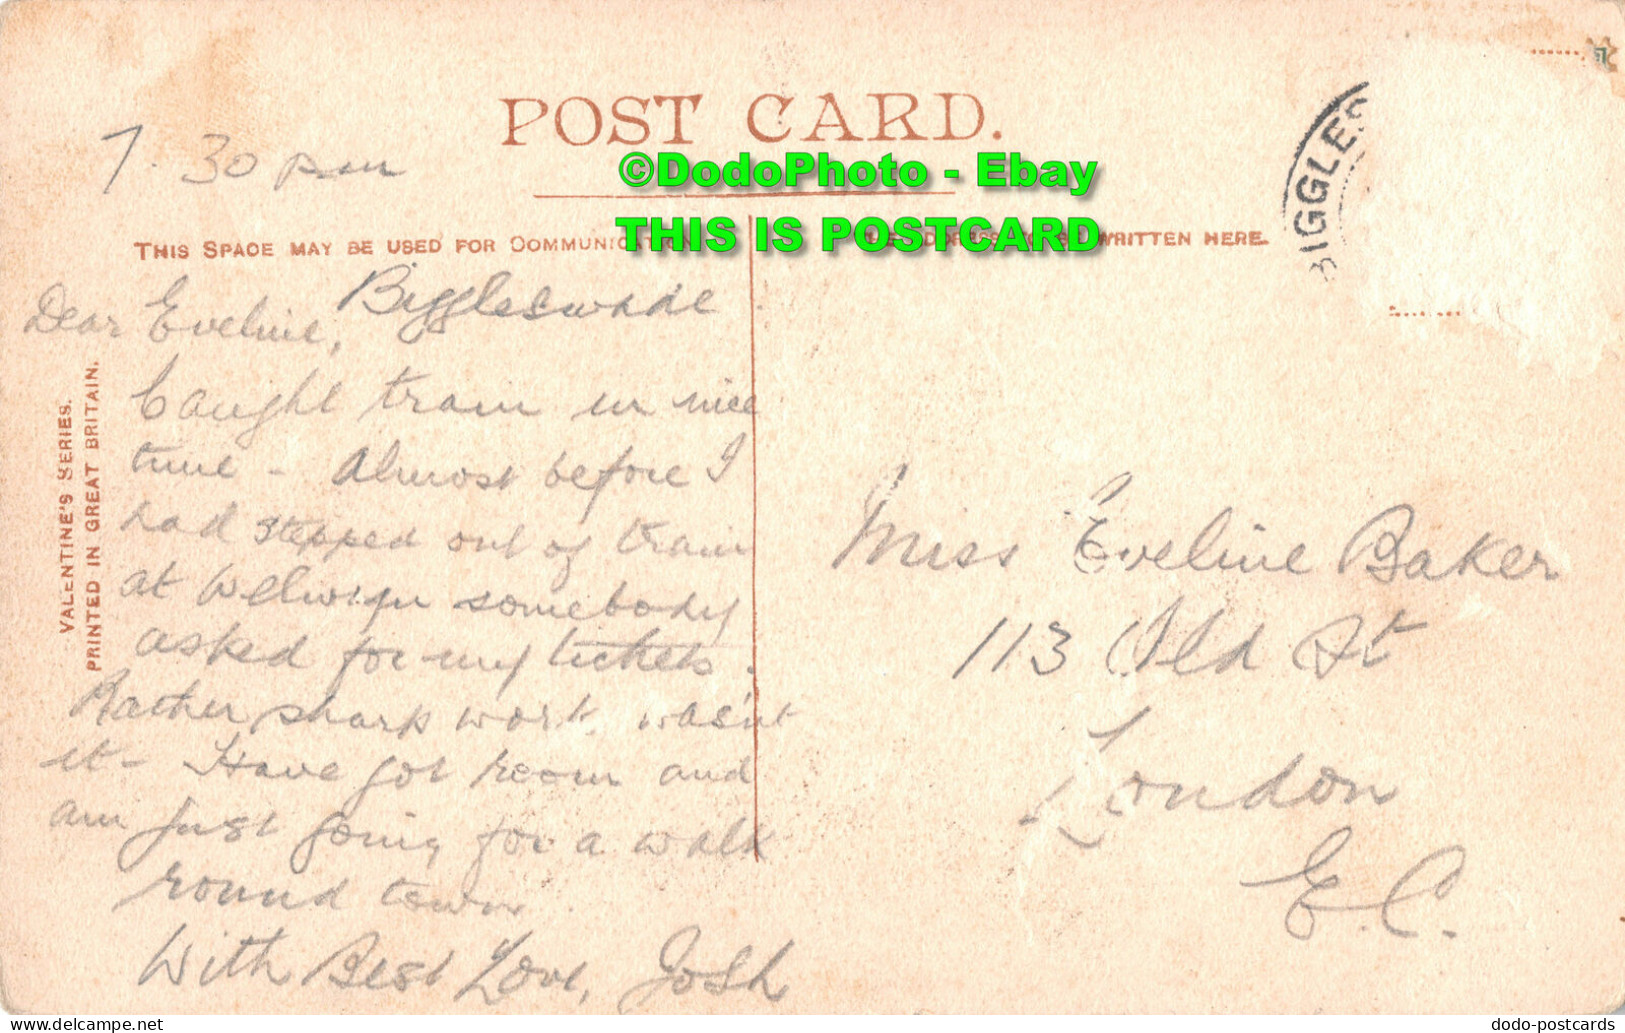 POST CARD.
©DodoPhoto - Ebay
THIS IS POSTCARD
7.30 pm
THIS SPACE MAY BE USED FOR COMMUNICATION
WRITTEN HERE.
BIGGLES
Biggleswade
Dear Eveline,
Caught train in nice
time - Almost before I
had stepped out of train
at Welwyn somebody
asked for my tickets.
Rather sharp work, wasn't
it - Have got room and
am just going for a walk
round town
With Best Love, Josh
VALENTINE'S SERIES.
PRINTED IN GREAT BRITAIN.
Miss Eveline Baker
113 Old St
London
E.C.
dodo-postcards
delcampe.net